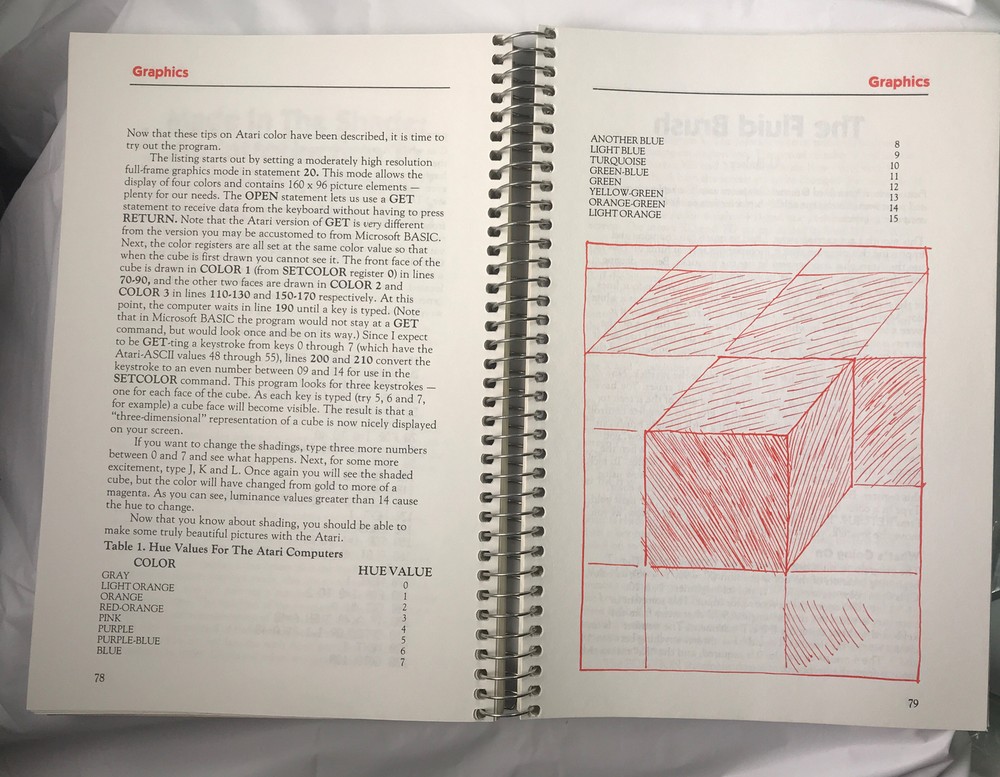 Graphics
Now that these tips on Atari color have been described, it is time to
try out the program.
The listing starts out by setting a moderately high resolution
full-frame graphics mode in statement 20. This mode allows the
display of four colors and contains 160 x 96 picture elements —
plenty for our needs. The OPEN statement lets us use a GET
statement to receive data from the keyboard without having to press
RETURN. Note that the Atari version of GET is very different
from the version you may be accustomed to from Microsoft BASIC.
Next, the color registers are all set at the same color value so that
when the cube is first drawn you cannot see it. The front face of the
cube is drawn in COLOR 1 (from SETCOLOR register 0) in lines
70-90, and the other two faces are drawn in COLOR 2 and
COLOR 3 in lines 110-130 and 150-170 respectively. At this
point, the computer waits in line 190 until a key is typed. (Note
that in Microsoft BASIC the program would not stay at a GET
command, but would look once and be on its way.) Since I expect
to be GET-ting a keystroke from keys 0 through 7 (which have the
Atari-ASCII values 48 through 55), lines 200 and 210 convert the
keystroke to an even number between 09 and 14 for use in the
SETCOLOR command. This program looks for three keystrokes —
one for each face of the cube. As each key is typed (try 5, 6 and 7,
for example) a cube face will become visible. The result is that a
"three-dimensional" representation of a cube is now nicely displayed
on your screen.
If you want to change the shadings, type three more numbers
between 0 and 7 and see what happens. Next, for some more
excitement, type J, K and L. Once again you will see the shaded
cube, but the color will have changed from gold to more of a
magenta. As you can see, luminance values greater than 14 cause
the hue to change.
Now that you know about shading, you should be able to
make some truly beautiful pictures with the Atari.
Table 1. Hue Values For The Atari Computers
COLOR HUE VALUE
GRAY 0
LIGHT ORANGE 1
ORANGE 2
RED-ORANGE 3
PINK 4
PURPLE 5
PURPLE-BLUE 6
BLUE 7
78
Graphics
ANOTHER BLUE 8
LIGHT BLUE 9
TURQUOISE 10
GREEN-BLUE 11
GREEN 12
YELLOW-GREEN 13
ORANGE-GREEN 14
LIGHT ORANGE 15
79